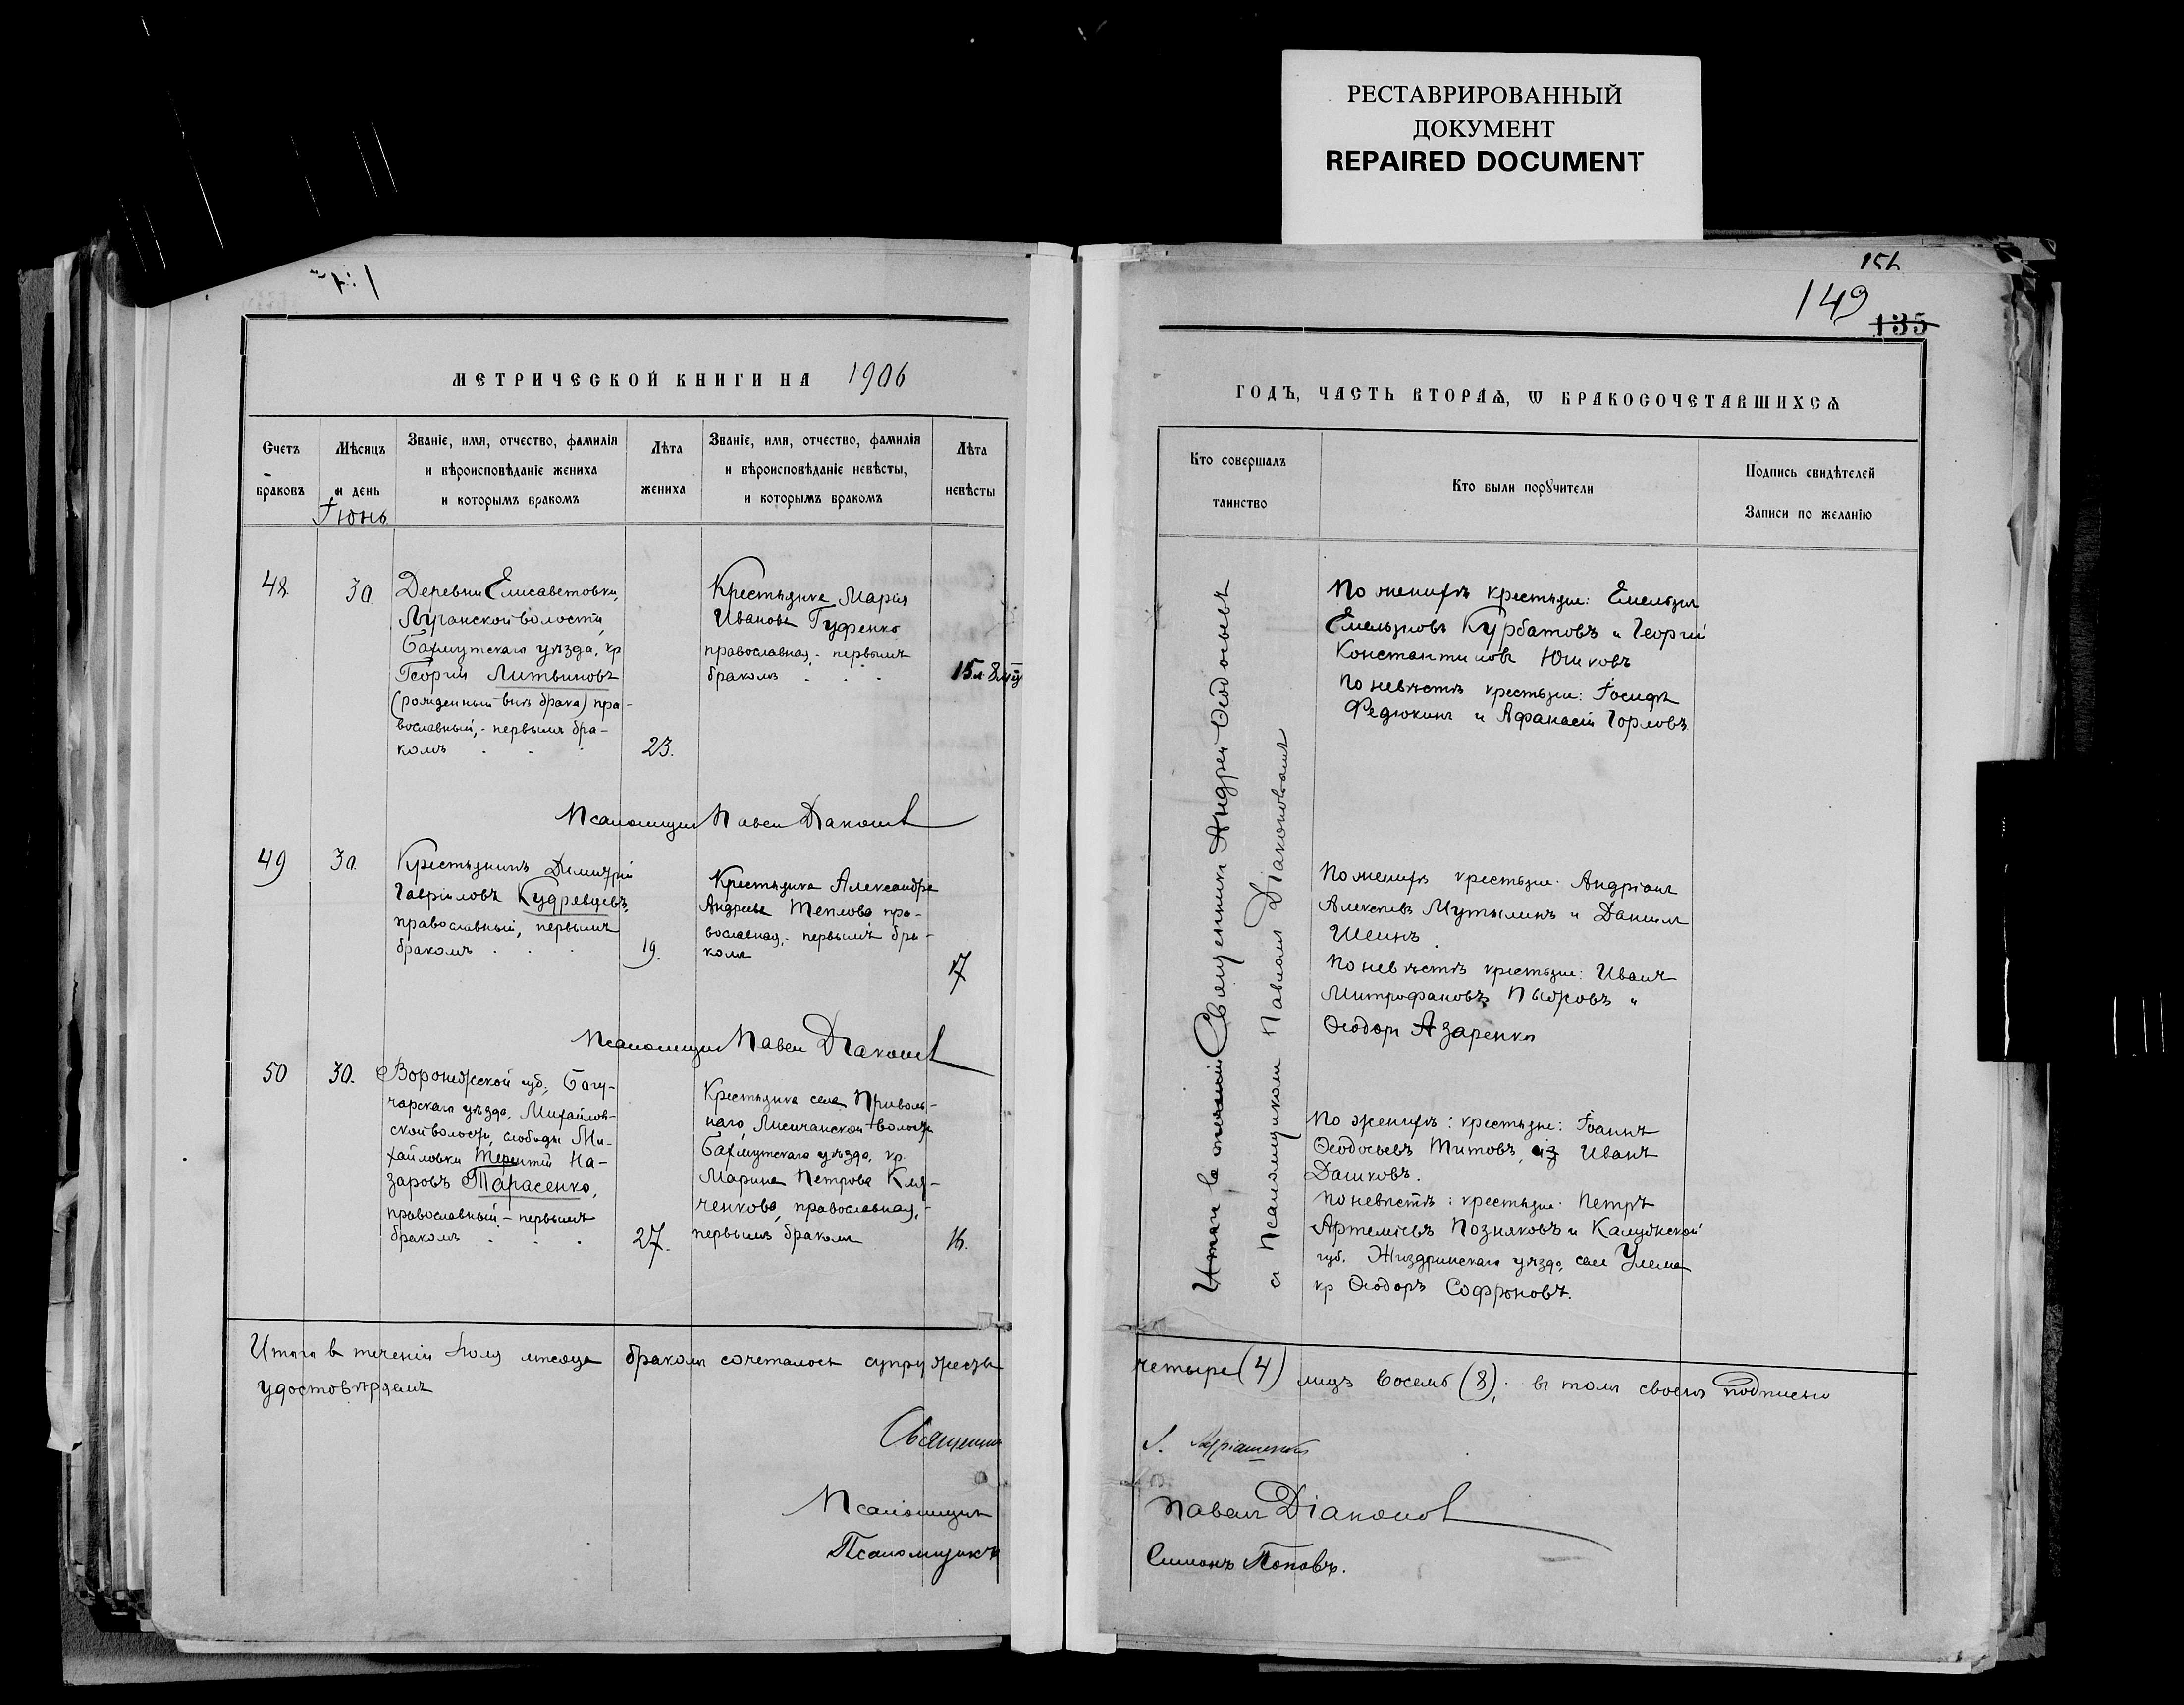 РЕСТАВРИРОВАННЫЙ
ДОКУМЕНТ
REPAIRED DOCUMENT
МЕТРИЧЕСКОЙ КНИГИ НА 1906
Счетъ браковъ
Мѣсяцъ и день
Іюнь
Званіе, имя, отчество, фамилія
и вѣроисповѣданіе жениха
и которымъ бракомъ
Лѣта
жениха
Званіе, имя, отчество, фамилія
и вѣроисповѣданіе невѣсты,
и которымъ бракомъ
Лѣта
невѣсты
48
30
Деревни Елисаветовки,
Луганской волости,
Бахмутскаго уѣзда, кр
Георгій Литвиновъ
(рожденный внѣ брака) пра-
вославный, - первымъ бра-
комъ . . .
23.
Крестьянка Марія
Иванова Гуфенко
православная, - первымъ
бракомъ . . .
15 л. 8 м-ц
Псаломщикъ Павелъ Діаконовъ
49
30.
Крестьянинъ Димитрій
Гавріиловъ Кудрявцевъ,
православный, первымъ
бракомъ . . .
19.
Крестьянка Александра
Андреева Теплова пра-
вославная, - первымъ бра-
комъ
17
Псаломщикъ Павелъ Діаконовъ
50
30.
Воронежской губ., Богу-
чарскаго уѣзда, Михайлов-
ской волости, слободы Ми-
хайловки Терентій На-
заровъ Тарасенко,
православный, - первымъ
бракомъ . . .
27.
Крестьянка села Приволь-
наго, Лисичанской волости
Бахмутскаго уѣзда, кр.
Марина Петрова Кля-
ченкова, православная, -
первымъ бракомъ
16.
Итого въ теченіи Іюня мѣсяца бракомъ сочеталось супружества
удостовѣряемъ
Священникъ
Псаломщикъ
Псаломщикъ
149
135
ГОДЪ, ЧАСТЬ ВТОРАѦ, Ѡ БРАКОСОЧЕТАВШИХСѦ
Кто совершалъ
таинство
Кто были порꙋчители
Подпись свидѣтелей
Записи по желанію
Священникъ Андрей Ѳеодосьевъ
съ Псаломщикомъ Павломъ Діаконовымъ
По женихѣ крестьяне: Емельянъ
Емельяновъ Курбатовъ и Георгій
Константиновъ Юшковъ
По невѣстѣ крестьяне: Іосифъ
Федюкинъ и Афанасій Горловъ.
По женихѣ крестьяне: Андріанъ
Алексѣевъ Мутылинъ и Даніилъ
Шеинъ.
По невѣстѣ крестьяне: Иванъ
Митрофановъ Пыжовъ и
Ѳеодоръ Азаренко
По женихѣ: крестьяне: Іоаннъ
Ѳеодосьевъ Титовъ, из Иванъ
Дашковъ.
По невѣстѣ: крестьяне: Петръ
Артеміевъ Позняковъ и Калужской
губ. Жиздринскаго уѣзда, села Улема
кр Ѳеодоръ Софроновъ.
четыре (4) лицъ восемь (8); въ томъ своею подписью
Павелъ Діаконовъ
Симонъ Поповъ.